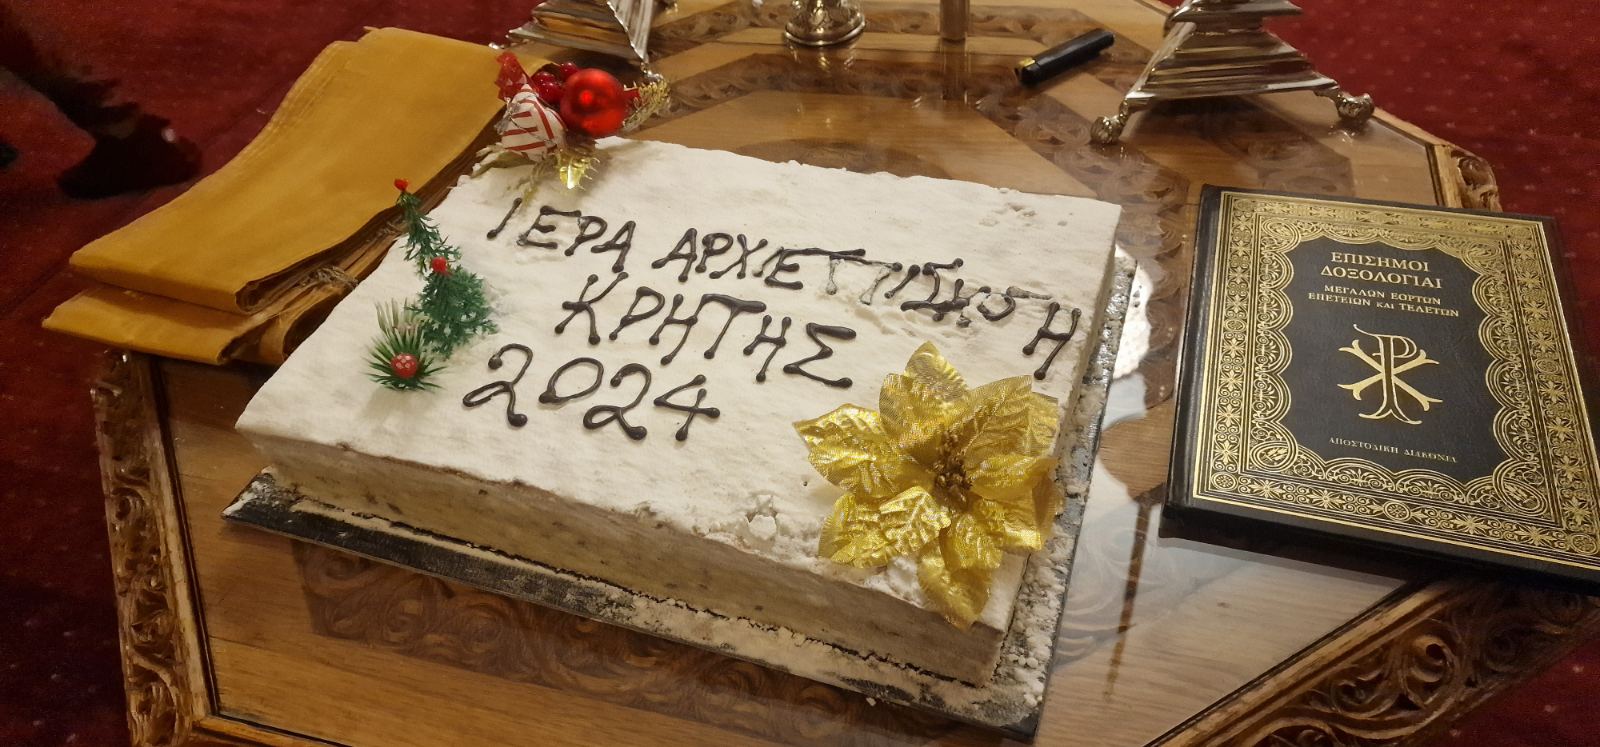 ΙΕΡΑ ΑΡΧΙΕΠΙΣΚΟΠΗ
ΚΡΗΤΗΣ
2024
ΕΠΙΣΗΜΟΙ
ΔΟΞΟΛΟΓΙΑΙ
ΜΕΓΑΛΩΝ ΕΟΡΤΩΝ
ΕΠΕΤΕΙΩΝ ΚΑΙ ΤΕΛΕΤΩΝ
ΑΠΟΣΤΟΛΙΚΗ ΔΙΑΚΟΝΙΑ